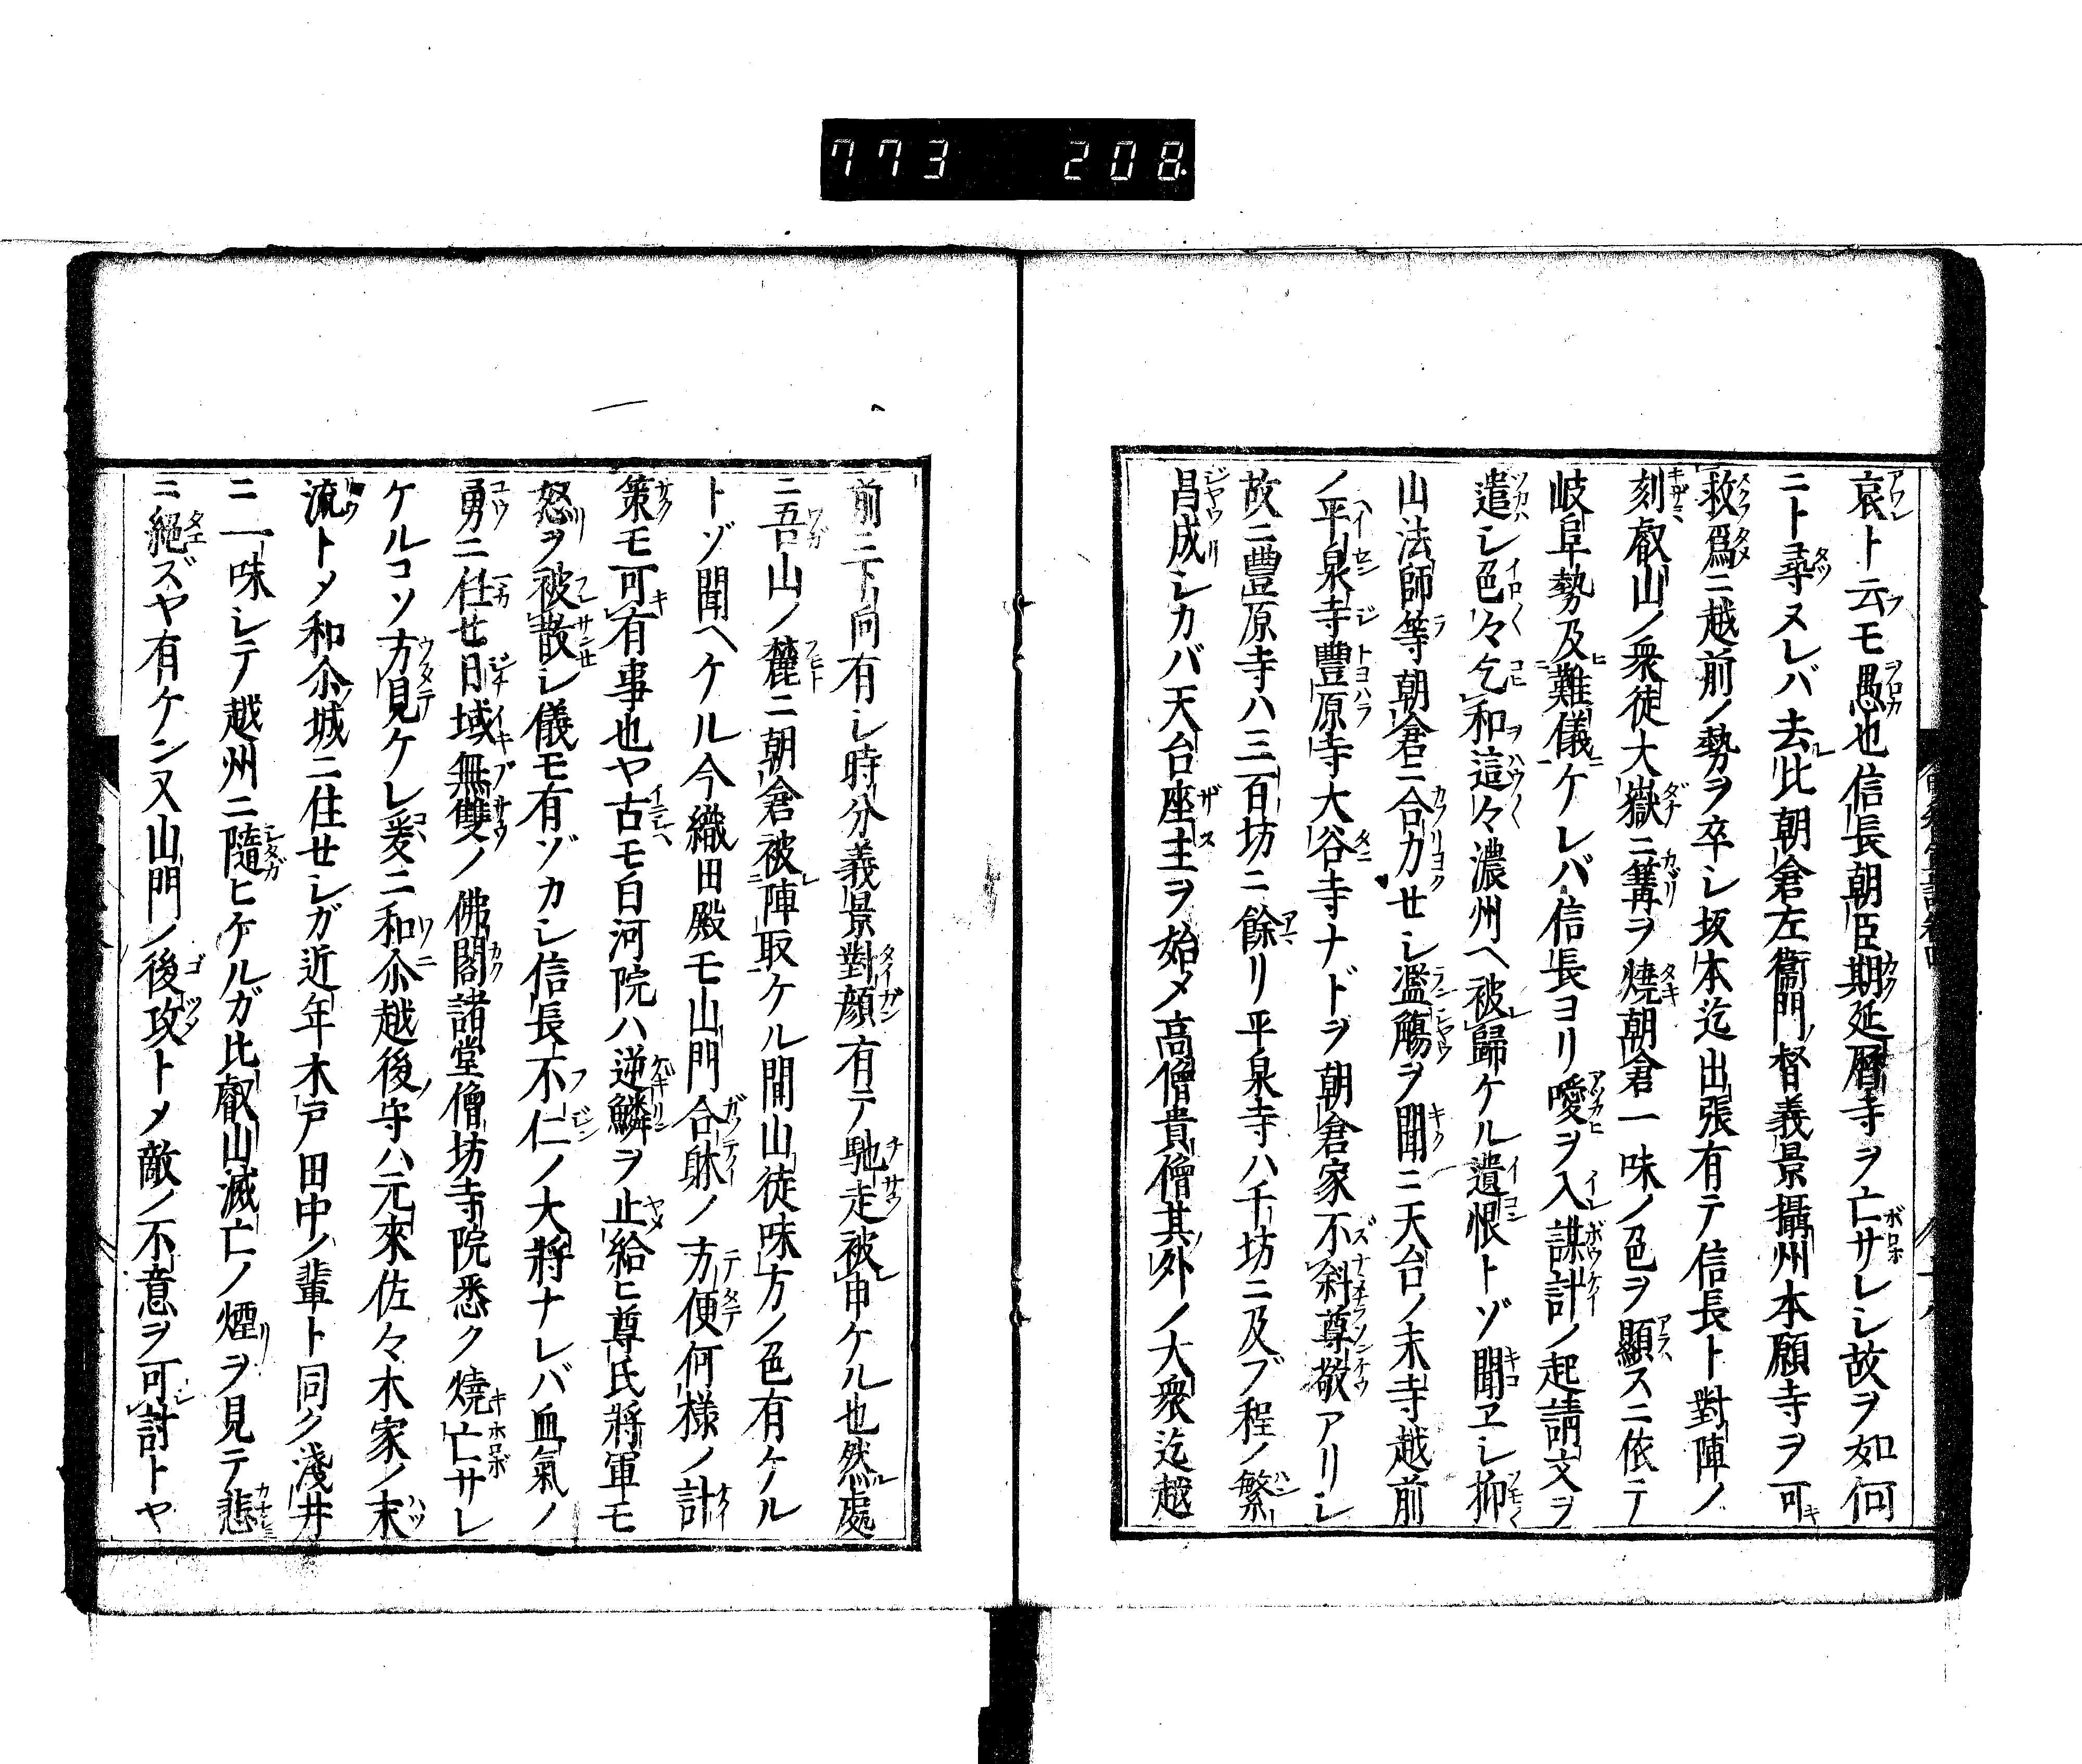 773 208
哀ト云モ愚也信長朝臣期延暦寺ヲ亡サレシ故ヲ如何
ニト尋ヌレバ去比朝倉左衞門督義景攝州本願寺ヲ可
救爲ニ越前ノ勢ヲ卒シ坂本迄出張有テ信長ト對陣ノ
刻叡山ノ衆徒大嶽ニ篝ヲ燒朝倉一味ノ色ヲ顯スニ依テ
岐阜勢及難儀ケレバ信長ヨリ噯ヲ入謀計ノ起請文ヲ
遣シ色々乞和這々濃州ヘ被歸ケル遺恨トゾ聞ヱシ抑
山法師等朝倉ニ合力せシ濫觴ヲ聞ニ天台ノ末寺越前
ノ平泉寺豐原寺大谷寺ナドヲ朝倉家不斜尊敬アリシ
故ニ豐原寺ハ三百坊ニ餘リ平泉寺ハ千坊ニ及ブ程ノ繁
昌成シカバ天台座主ヲ始メ高僧貴僧其外ノ大衆迄越
前ニ下向有シ時分義景對顔有テ馳走被申ケル也然處
ニ吾山ノ麓ニ朝倉被陣取ケル間山徒味方ノ色有ケル
トゾ聞ヘケル今織田殿モ山門合躰ノ方便何樣ノ計
策モ可有事也ヤ古モ白河院ハ逆鱗ヲ止給ヒ尊氏將軍モ
怒ヲ被散シ儀モ有ゾカシ信長不仁ノ大將ナレバ血氣ノ
勇ニ任せ日域無雙ノ佛閣諸堂僧坊寺院悉ク燒亡サレ
ケルコソ方見ケレ爰ニ和尒越後守ハ元來佐々木家ノ末
流トメ和尒城ニ住せシガ近年木戸田中ノ輩ト同ク淺井
ニ一味シテ越州ニ隨ヒケルガ比叡山滅亡ノ煙ヲ見テ悲
ニ絕ズヤ有ケン又山門ノ後攻トメ敵ノ不意ヲ可討トヤ